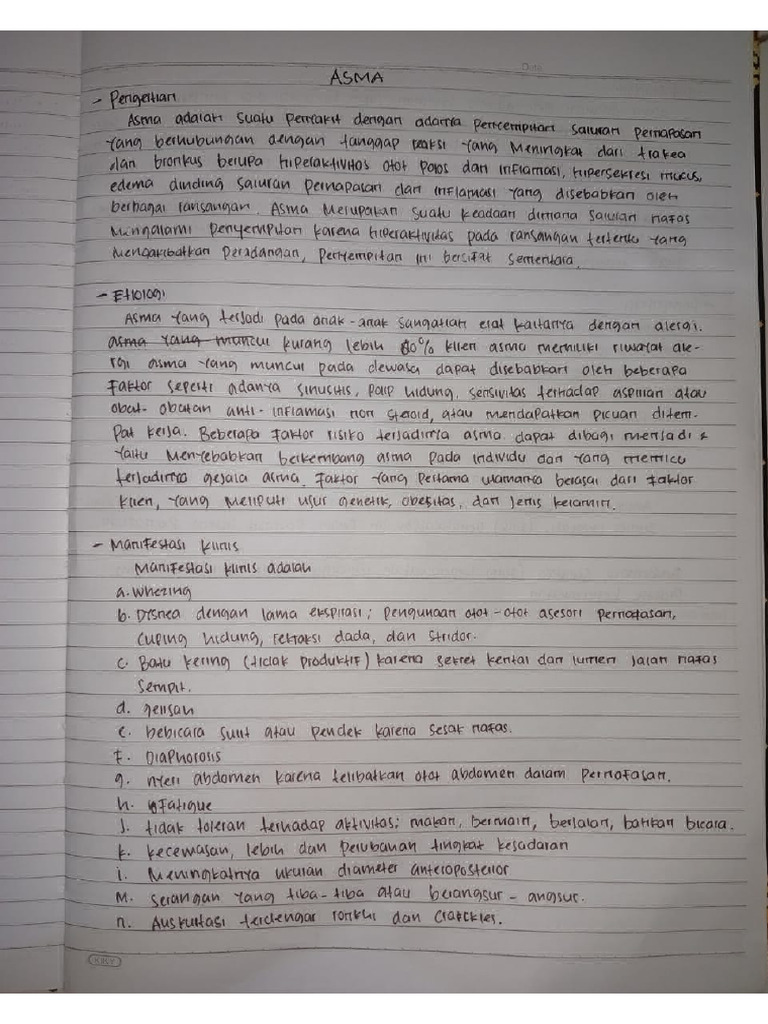 ASMA
- Pengertian
Asma adalah suatu penyakit dengan adanya penyempitan saluran pernapasan
yang berhubungan dengan tanggap reaksi yang meningkat dari trakea
dan bronkus berupa hiperaktivitas otot polos dan inflamasi, hipersekresi mucus,
edema dinding saluran pernapasan dan inflamasi yang disebabkan oleh
berbagai ransangan. Asma merupakan suatu keadaan dimana saluran nafas
mengalami penyempitan karena hiperaktivitas pada ransangan tertentu yang
mengakibatkan peradangan, penyempitan ini bersifat sementara.
- Etiologi
Asma yang terjadi pada anak-anak sangatlah erat kaitanya dengan alergi.
asma yang muncul kurang lebih 80% klien asma memiliki riwayat ale-
rgi asma yang muncul pada dewasa dapat disebabkan oleh beberapa
faktor seperti adanya sinusitis, polip hidung, sensivitas terhadap aspirian atau
obat-obatan anti-inflamasi non steroid, atau mendapatkan picuan ditem-
pat kerja. Beberapa faktor risiko terjadinya asma dapat dibagi menjadi 2
yaitu menyebabkan berkembang asma pada individu dan yang memicu
terjadinya gejala asma. Faktor yang pertama utamanya berasal dari faktor
klien, yang meliputi usur genetik, obesitas, dan jenis kelamin.
- Manifestasi klinis
Manifestasi klinis adalah
a. Whezing
b. Disnea dengan lama ekspirasi; pengunaan otot-otot asesori pernafasan,
cuping hidung, retraksi dada, dan stridor.
c. Batu kering (tidak produktif) karena sekret kental dan lumen jalan nafas
sempit.
d. gelisah
e. bebicara sulit atau pendek karena sesak nafas.
f. Diaphorosis
g. nyeri abdomen karena telibatkan otot abdomen dalam pernafasan.
h. Fatigue
J. tidak toleran terhadap aktivitas; makan, bermain, berjalan, bahkan bicara.
k. kecemasan, lebih dan perubanan tingkat kesadaran
i. Meningkatnya ukuran diameter anteroposterior
M. serangan yang tiba-tiba atau berangsur-angsur.
n. Auskultasi terdengar ronkhi dan Cratckles.
KIKY